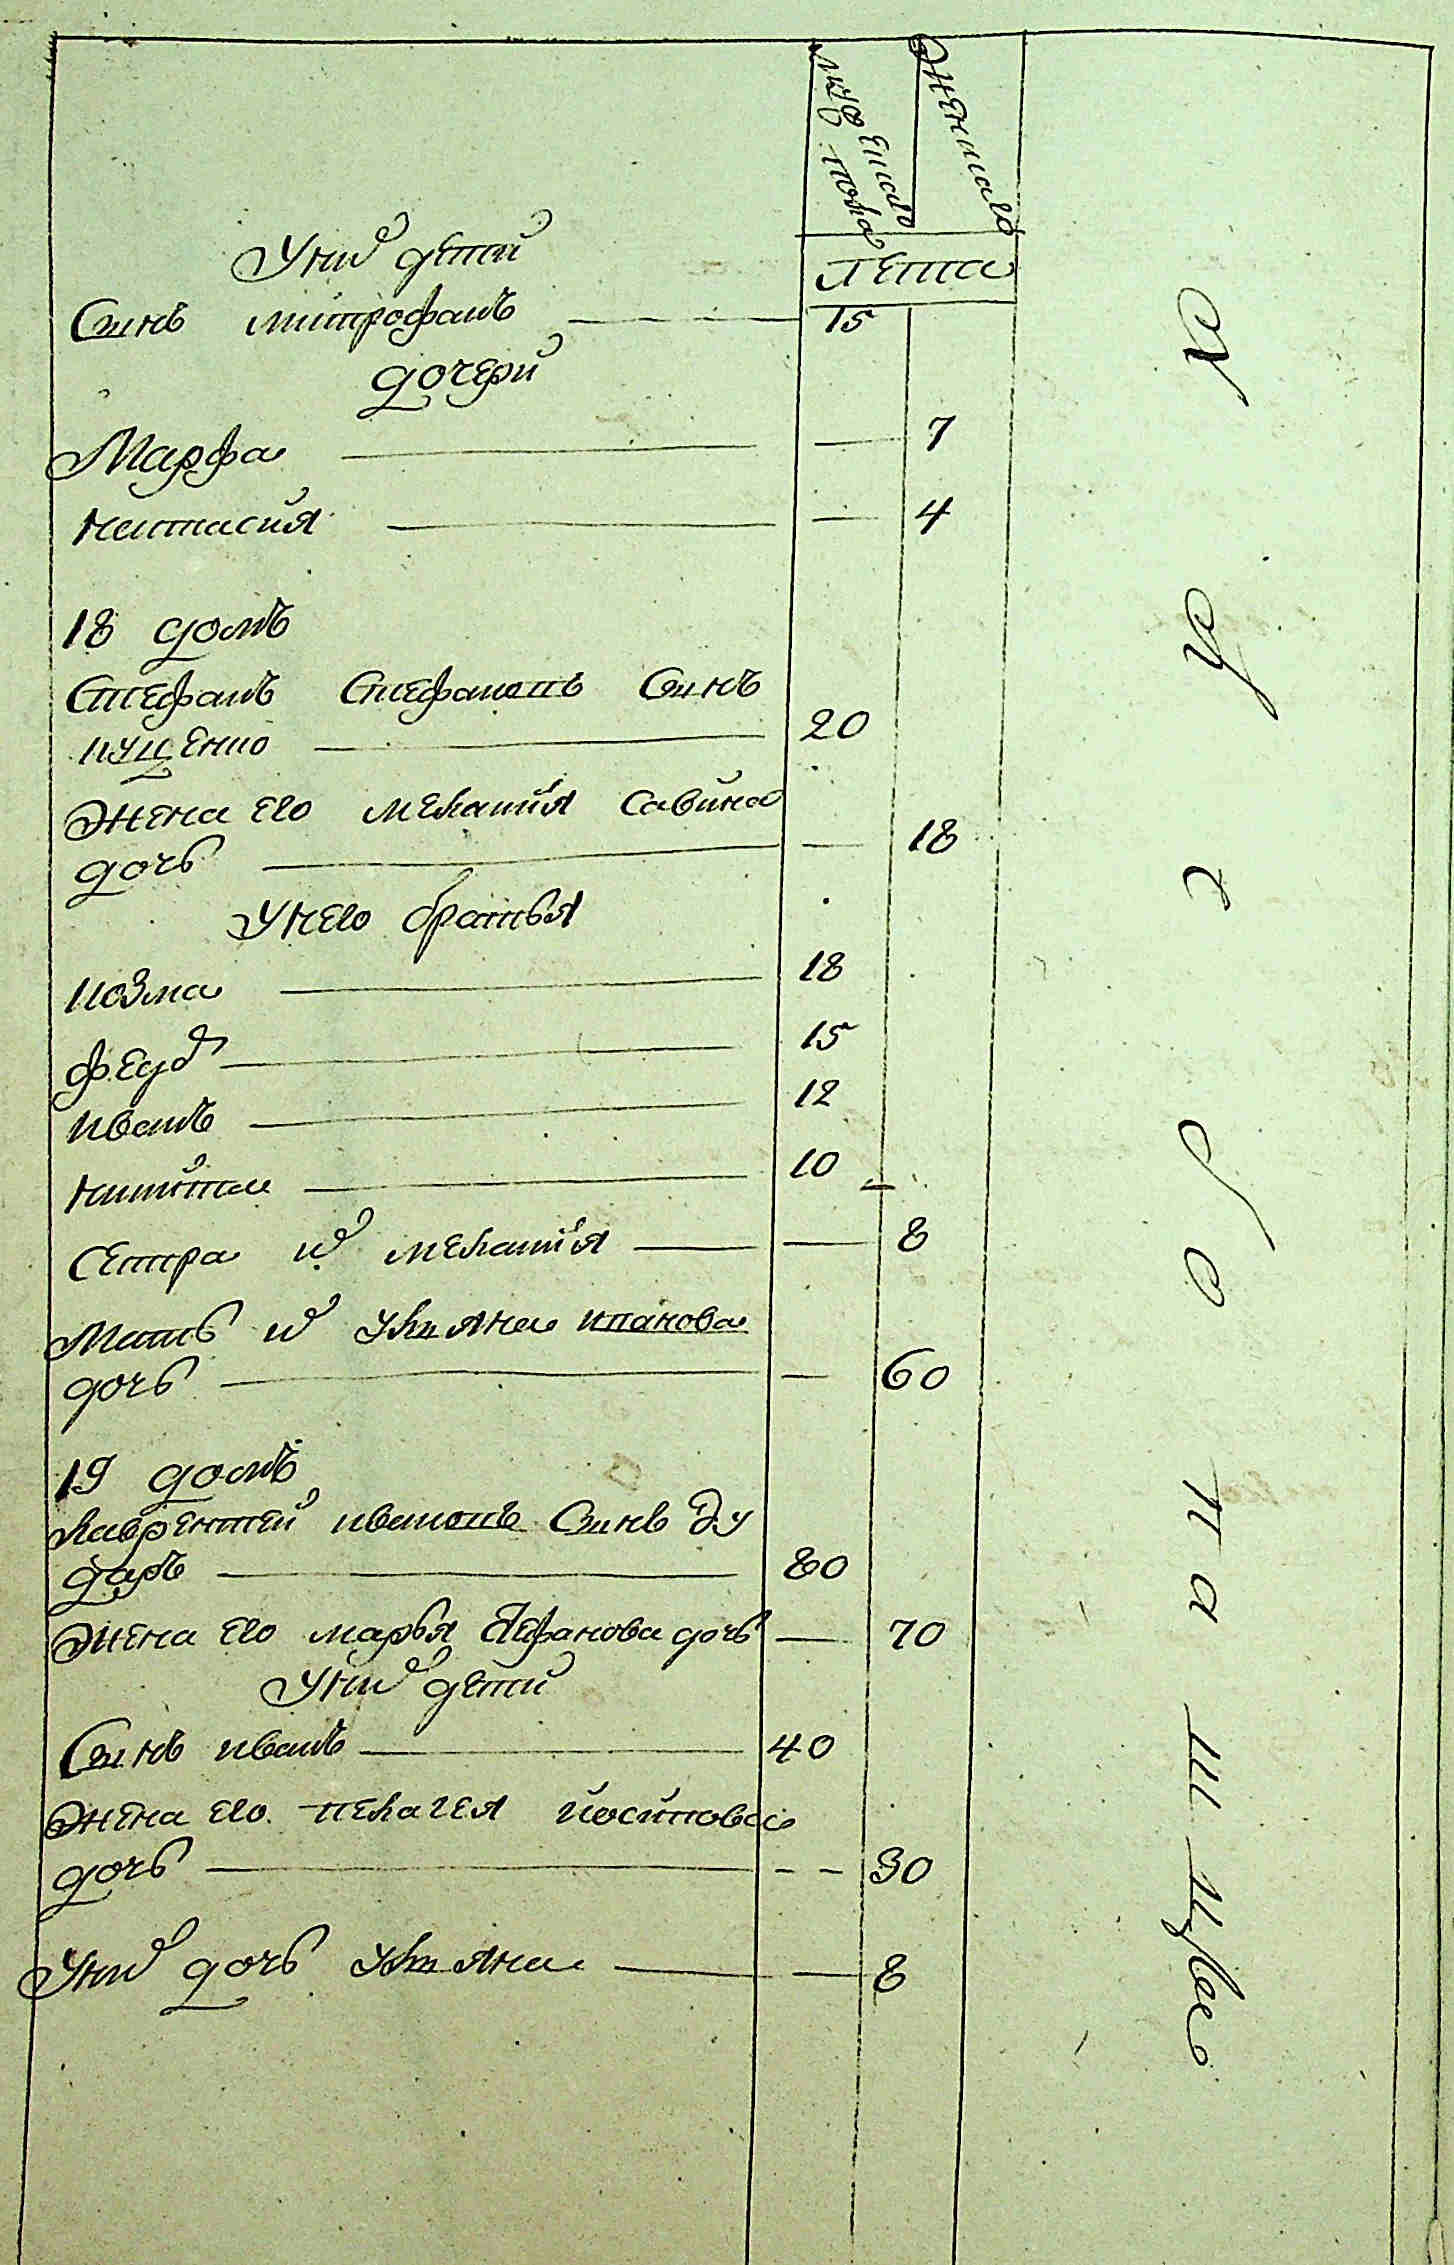 мужеска пола
женскаго
лета
У них дети
Сынъ митрофанъ — 15
дочери
Марфа — — 7
настасия — — 4
18 домъ
Стефанъ Стефановъ Сынъ
куценко — 20
Жена его мелания савина
дочь — — 18
У него братья
козма — 18
федор — 15
иванъ — 12
никита — 10
сестра их мелания — — 8
Мать их ульяна иванова
дочь — — 60
19 домъ
лаврентей ивановъ Сынъ Ду
даръ — 80
Жена его марья Стефанова дочь — 70
У них дети
Сынъ иванъ — 40
Жена его пелагея иосипова
дочь — — 30
У них дочь ульяна — — 8